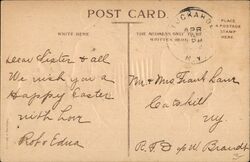 POST CARD
TUCKAHOE
APR
N.Y.
WRITE HERE
THE ADDRESS ONLY TO BE
WRITTEN HERE
PLACE
A POSTAGE
STAMP
HERE
Dear Sister & all
We wish you a
Happy Easter
with Love
Rob & Edna
Mr & Mrs Frank
Catskill
Ny.
R.F.D. c/o W Brandt